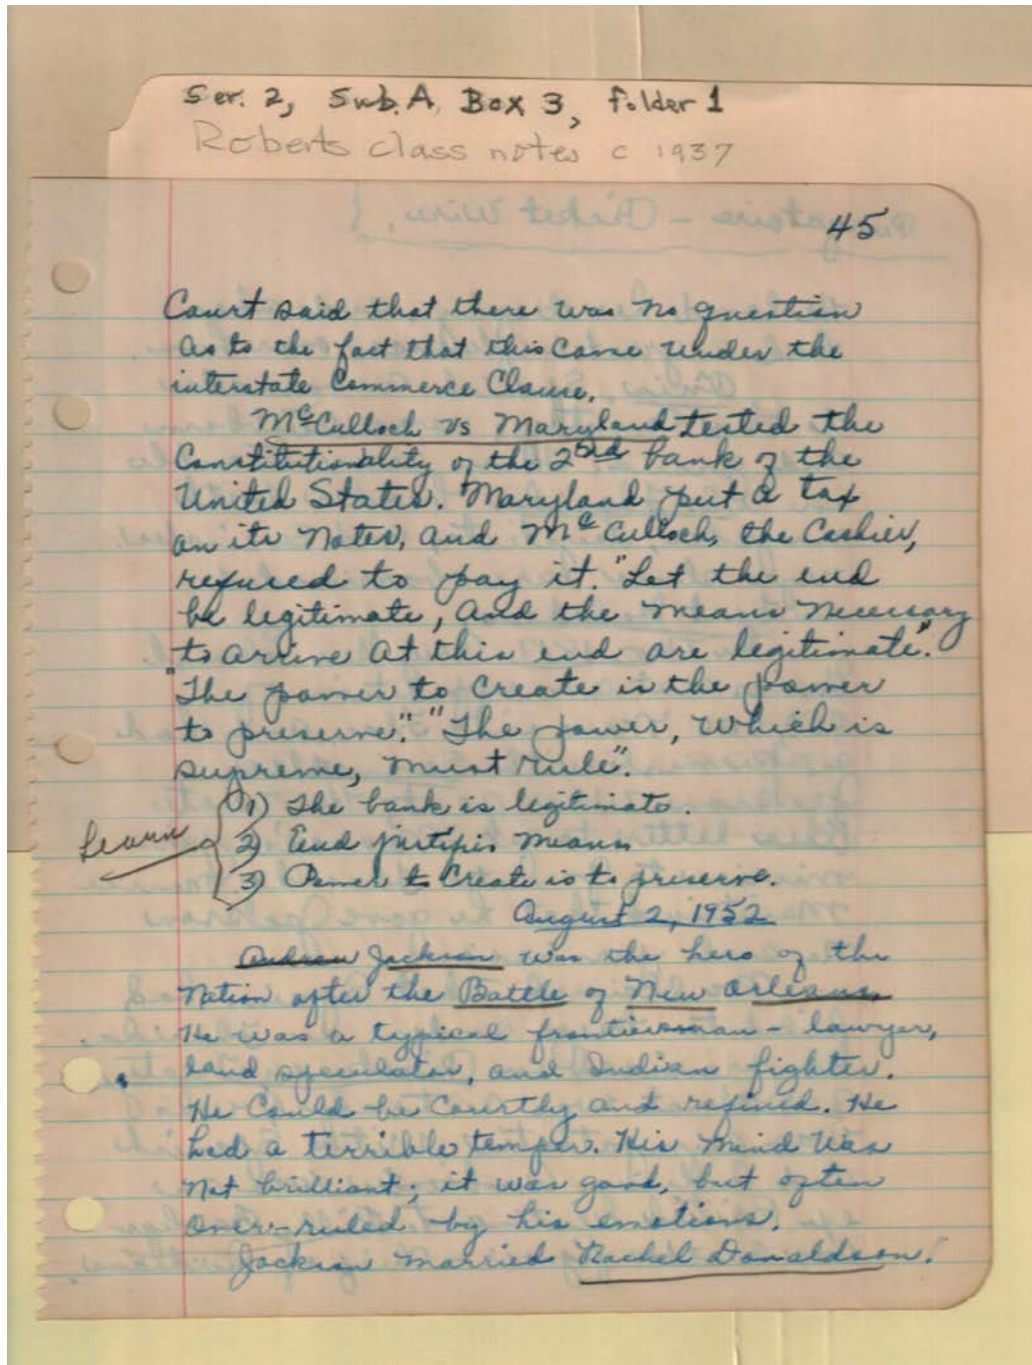 Ser. 2, Sub. A, Box 3, folder 1
Roberts class notes c 1937
45
Court said that there was no question
as to the fact that this came under the
interstate Commerce Clause.
McCulloch vs Maryland tested the
Constitutionality of the 2nd bank of the
United States. Maryland put a tax
on its notes, and McCulloch, the Cashier,
refused to pay it. "Let the end
be legitimate, and the means necessary
to arrive at this end are legitimate."
"The power to create is the power
to preserve". "The power, which is
supreme, must rule".
1) The bank is legitimate.
Learn
2) End justifies means
3) Power to create is to preserve.
August 2, 1952
Andrew Jackson was the hero of the
Nation after the Battle of New Orleans.
He was a typical frontiersman - lawyer,
land speculator, and Indian fighter.
He could be courtly and refined. He
had a terrible temper. His mind was
not brilliant; it was good, but often
over-ruled by his emotions.
Jackson married Rachel Donaldson.